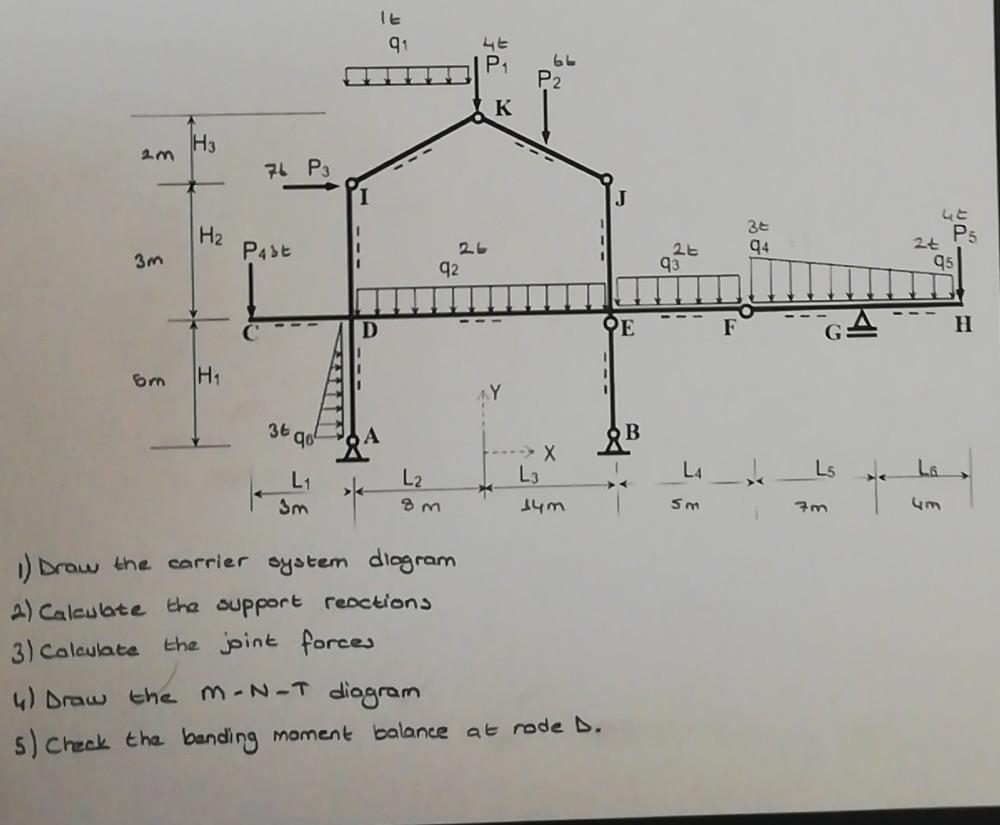 1t
q1
4t
P1
6t
P2
K
H3
2m
7t P3
I
J
H2
3m
P4 3t
2t
q2
2t
q3
3t
q4
2t
q5
4t
P5
C
D
E
F
G
H
H1
3t q6
A
B
Y
X
L1
L2
L3
L4
L5
L6
3m
8m
14m
5m
7m
4m
1) Draw the carrier system diagram
2) Calculate the support reactions
3) Calculate the joint forces
4) Draw the M-N-T diagram
5) Check the bending moment balance at node D.